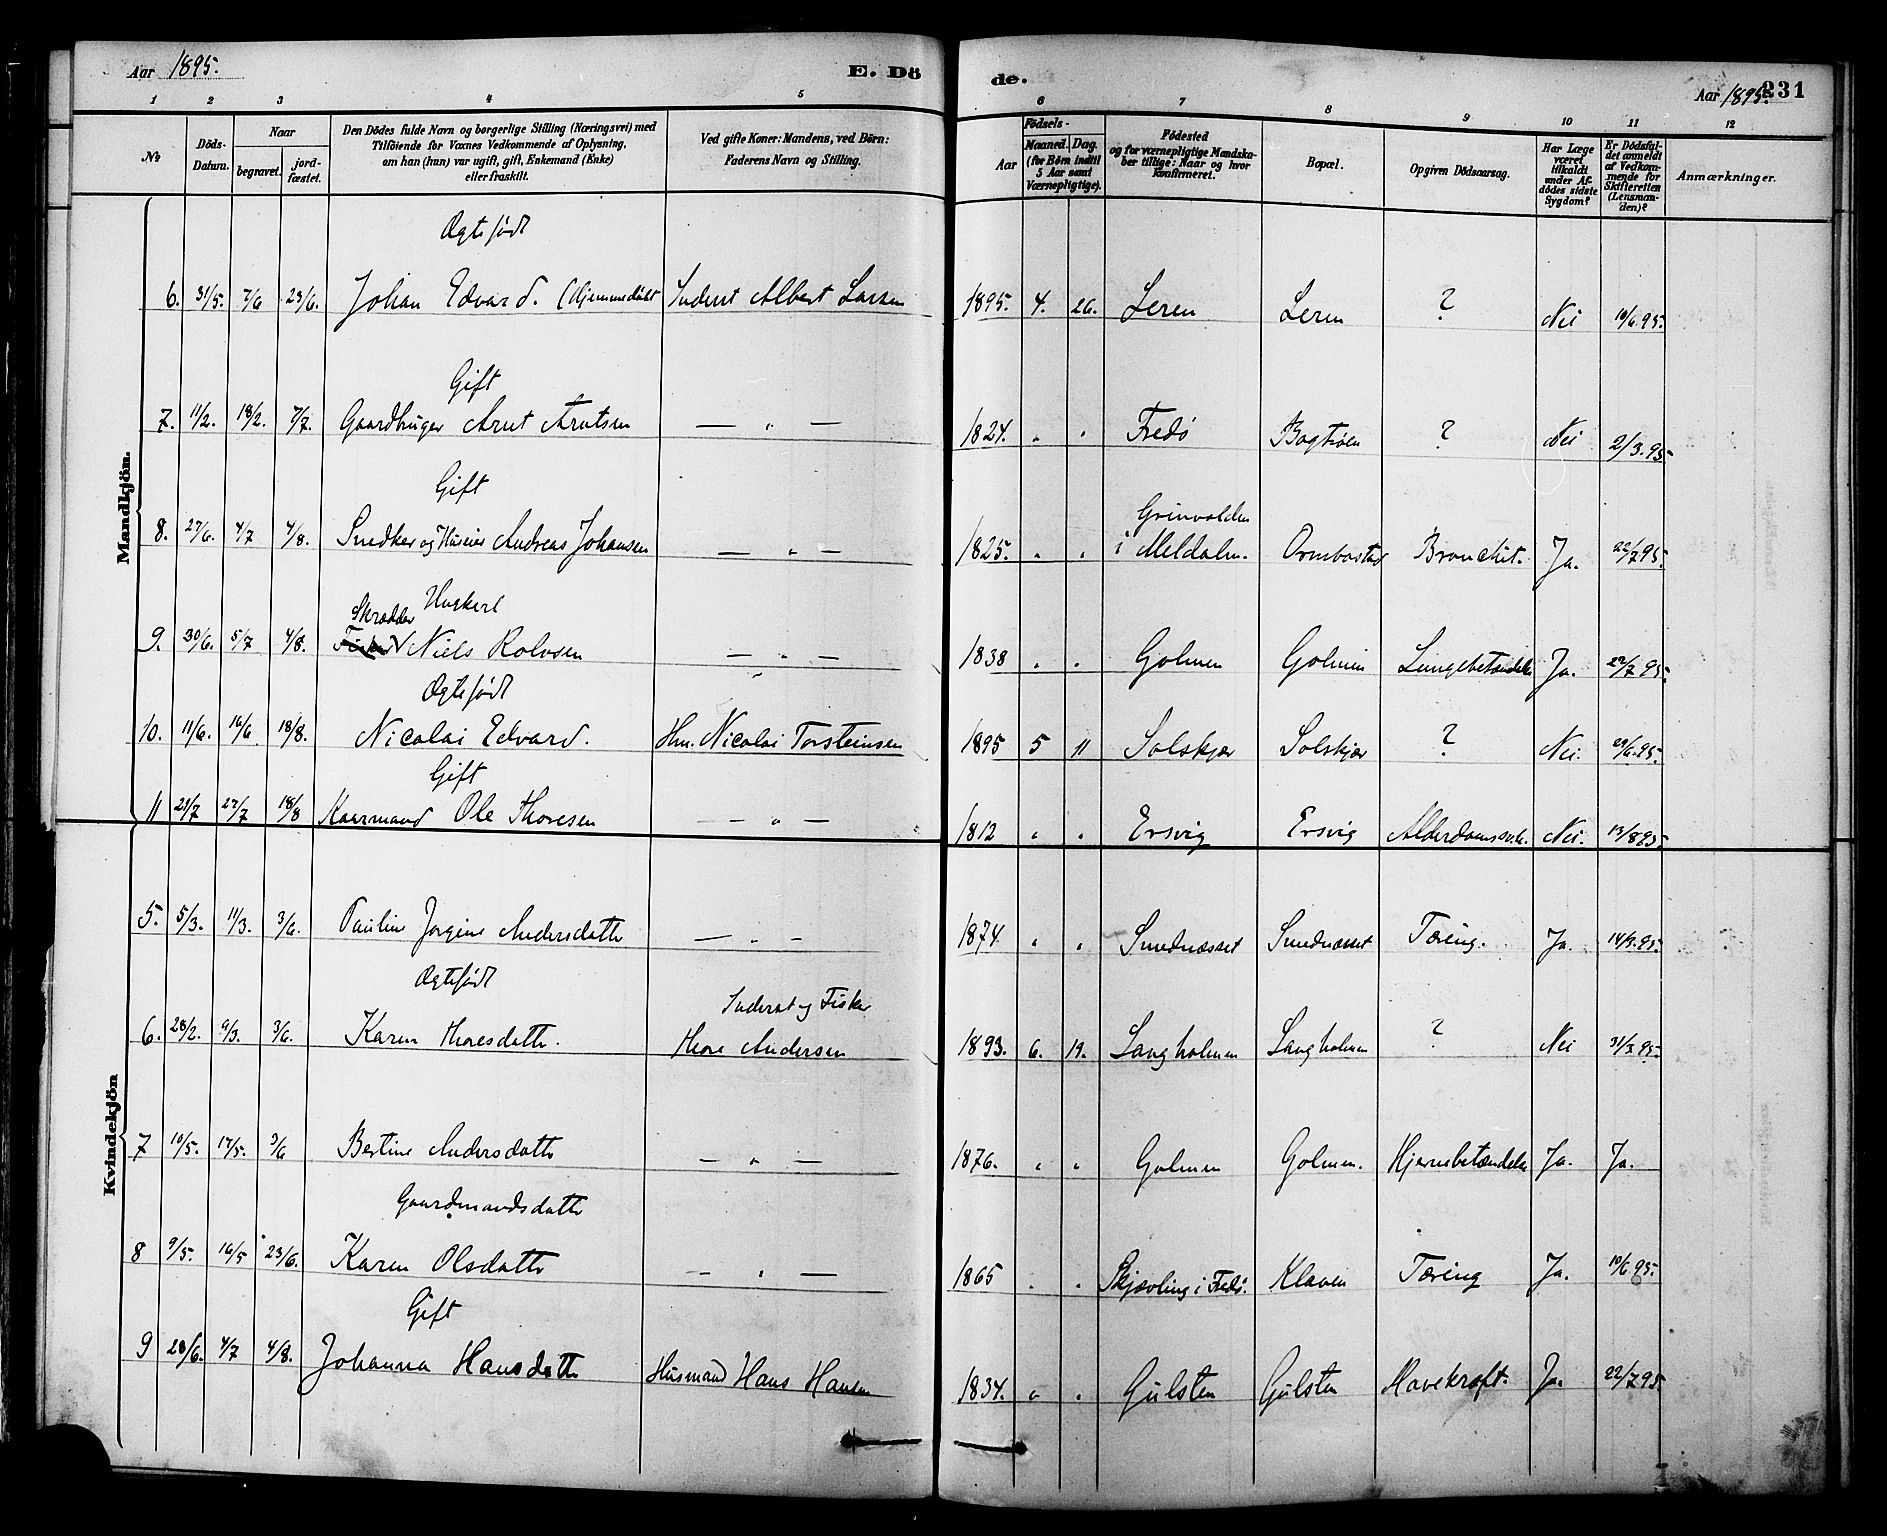 Aar 1895. E. Dö de. Aar 1895. 231
1 2 3 4 5 6 7 8 9 10 11 12
No. Döds-Datum. Naar begravet. jord-fæstet. Den Dödes fulde Navn og borgerlige Stilling (Næringsvei) med Tilföiende for Voxnes Vedkommende af Oplysning, om han (hun) var ugift, gift, Enkemand (Enke) eller fraskilt. Ved gifte Koner: Mandens, ved Börn: Faderens Navn og Stilling. Födsels- Aar Maaned. Dag. (for Börn indtil 5 Aar samt Værnepligtige). Födested og for værnepligtige Mandska-ber tillige: Naar og hvor konfirmeret. Bopæl. Opgiven Dödsaarsag. Har Læge været tilkaldt under Af-dödes sidste Sygdom? Er Dödsfal-det anmeldt af Vedkom-mende for Skifteretten (Lensman-den)? Anmærkninger.
Mandkjön.
Ægtefødt
6. 31/5. 7/6 23/6. Johan Edvard. (Hjemmedøbt Inderst Albert Larsen 1895. 4. 26. Leren Leren ? Nei 10/6.95.
Gift
7. 11/2. 18/2. 7/7. Gaardbruger Arnt Arntsen — „ — 1824. „ „ Fredø Bogtrøen ? Nei 2/3.95
Gift
8. 27/6. 4/7 4/8. Snedker og Huseier Andreas Johansen — „ — 1825. „ „ Grinvolden i Meldalen. Ormbostad Bronchit. Ja. 22/7 95.
Ungkarl
Skrædder
9. 30/6. 5/7 4/8. Niels Rolvsen — „ — 1838 „ „ Golmen Golmen Lungebetændelse Ja. 22/7 95.
Ægtefødt
10. 11/6. 16/6 18/8. Nicolai Edvard. Hm. Nicolai Torsteinsen 1895 5 11 Solskjær Solskjær ? Nei. 29/6.95.
Gift
11 21/7 27/7 18/8 Kaarmand Ole Thoresen — „ — 1812 „ „ Ersvig Ersvig Alderdomssvk. Nei. 13/8 95.
Kvindekjön
5. 5/3. 11/3. 3/6. Pauline Jørgine Andersdatter — „ — 1874. „ „ Smednæsset Smednæsset Tæring. Ja. 14/3.95.
Ægtefødt
Inderst og Fisker
6. 28/2. 9/3. 3/6. Karen Thoresdatter. Thore Andersen 1893. 6. 19. Langholmen Langholmen ? Nei 31/3.95.
7 10/5. 17/5. 3/6 Bertine Andersdatter — „ — 1876. „ „ Golmen Golmen. Hjernebetændelse Ja. Ja.
Gaardmandsdatter
8 9/5. 16/5 23/6. Karen Olsdatter — „ — 1865 „ „ Skjævling i Fredø. Klaven Tæring Ja. 10/6 95.
Gift
9 28/6. 4/7 4/8. Johanna Hansdatter Husmand Hans Hansen 1834. „ „ Gulsten Gulsten Mavekræft. Ja. 22/7 95.